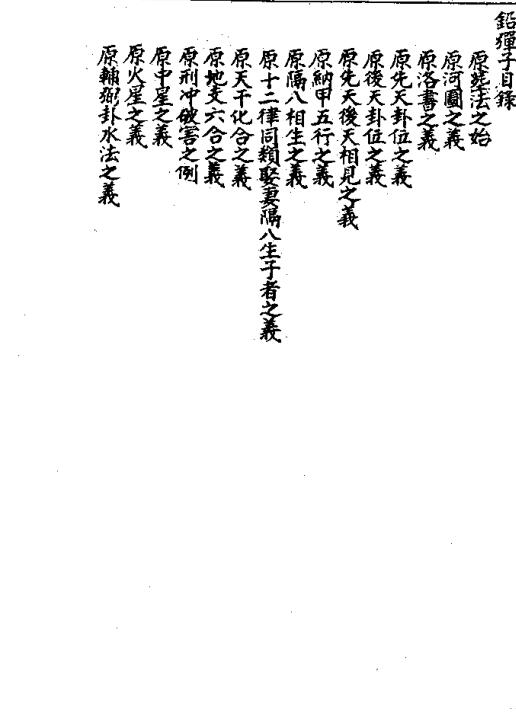 鉛彈子目録
原葬法之始
原河圖之義
原洛書之義
原先天卦位之義
原後天卦位之義
原先天後天相見之義
原納甲五行之義
原隔八相生之義
原十二律同類娶妻隔八生子者之義
原天干化合之義
原地支六合之義
原刑冲破害之例
原中星之義
原火星之義
原輔弼卦水法之義